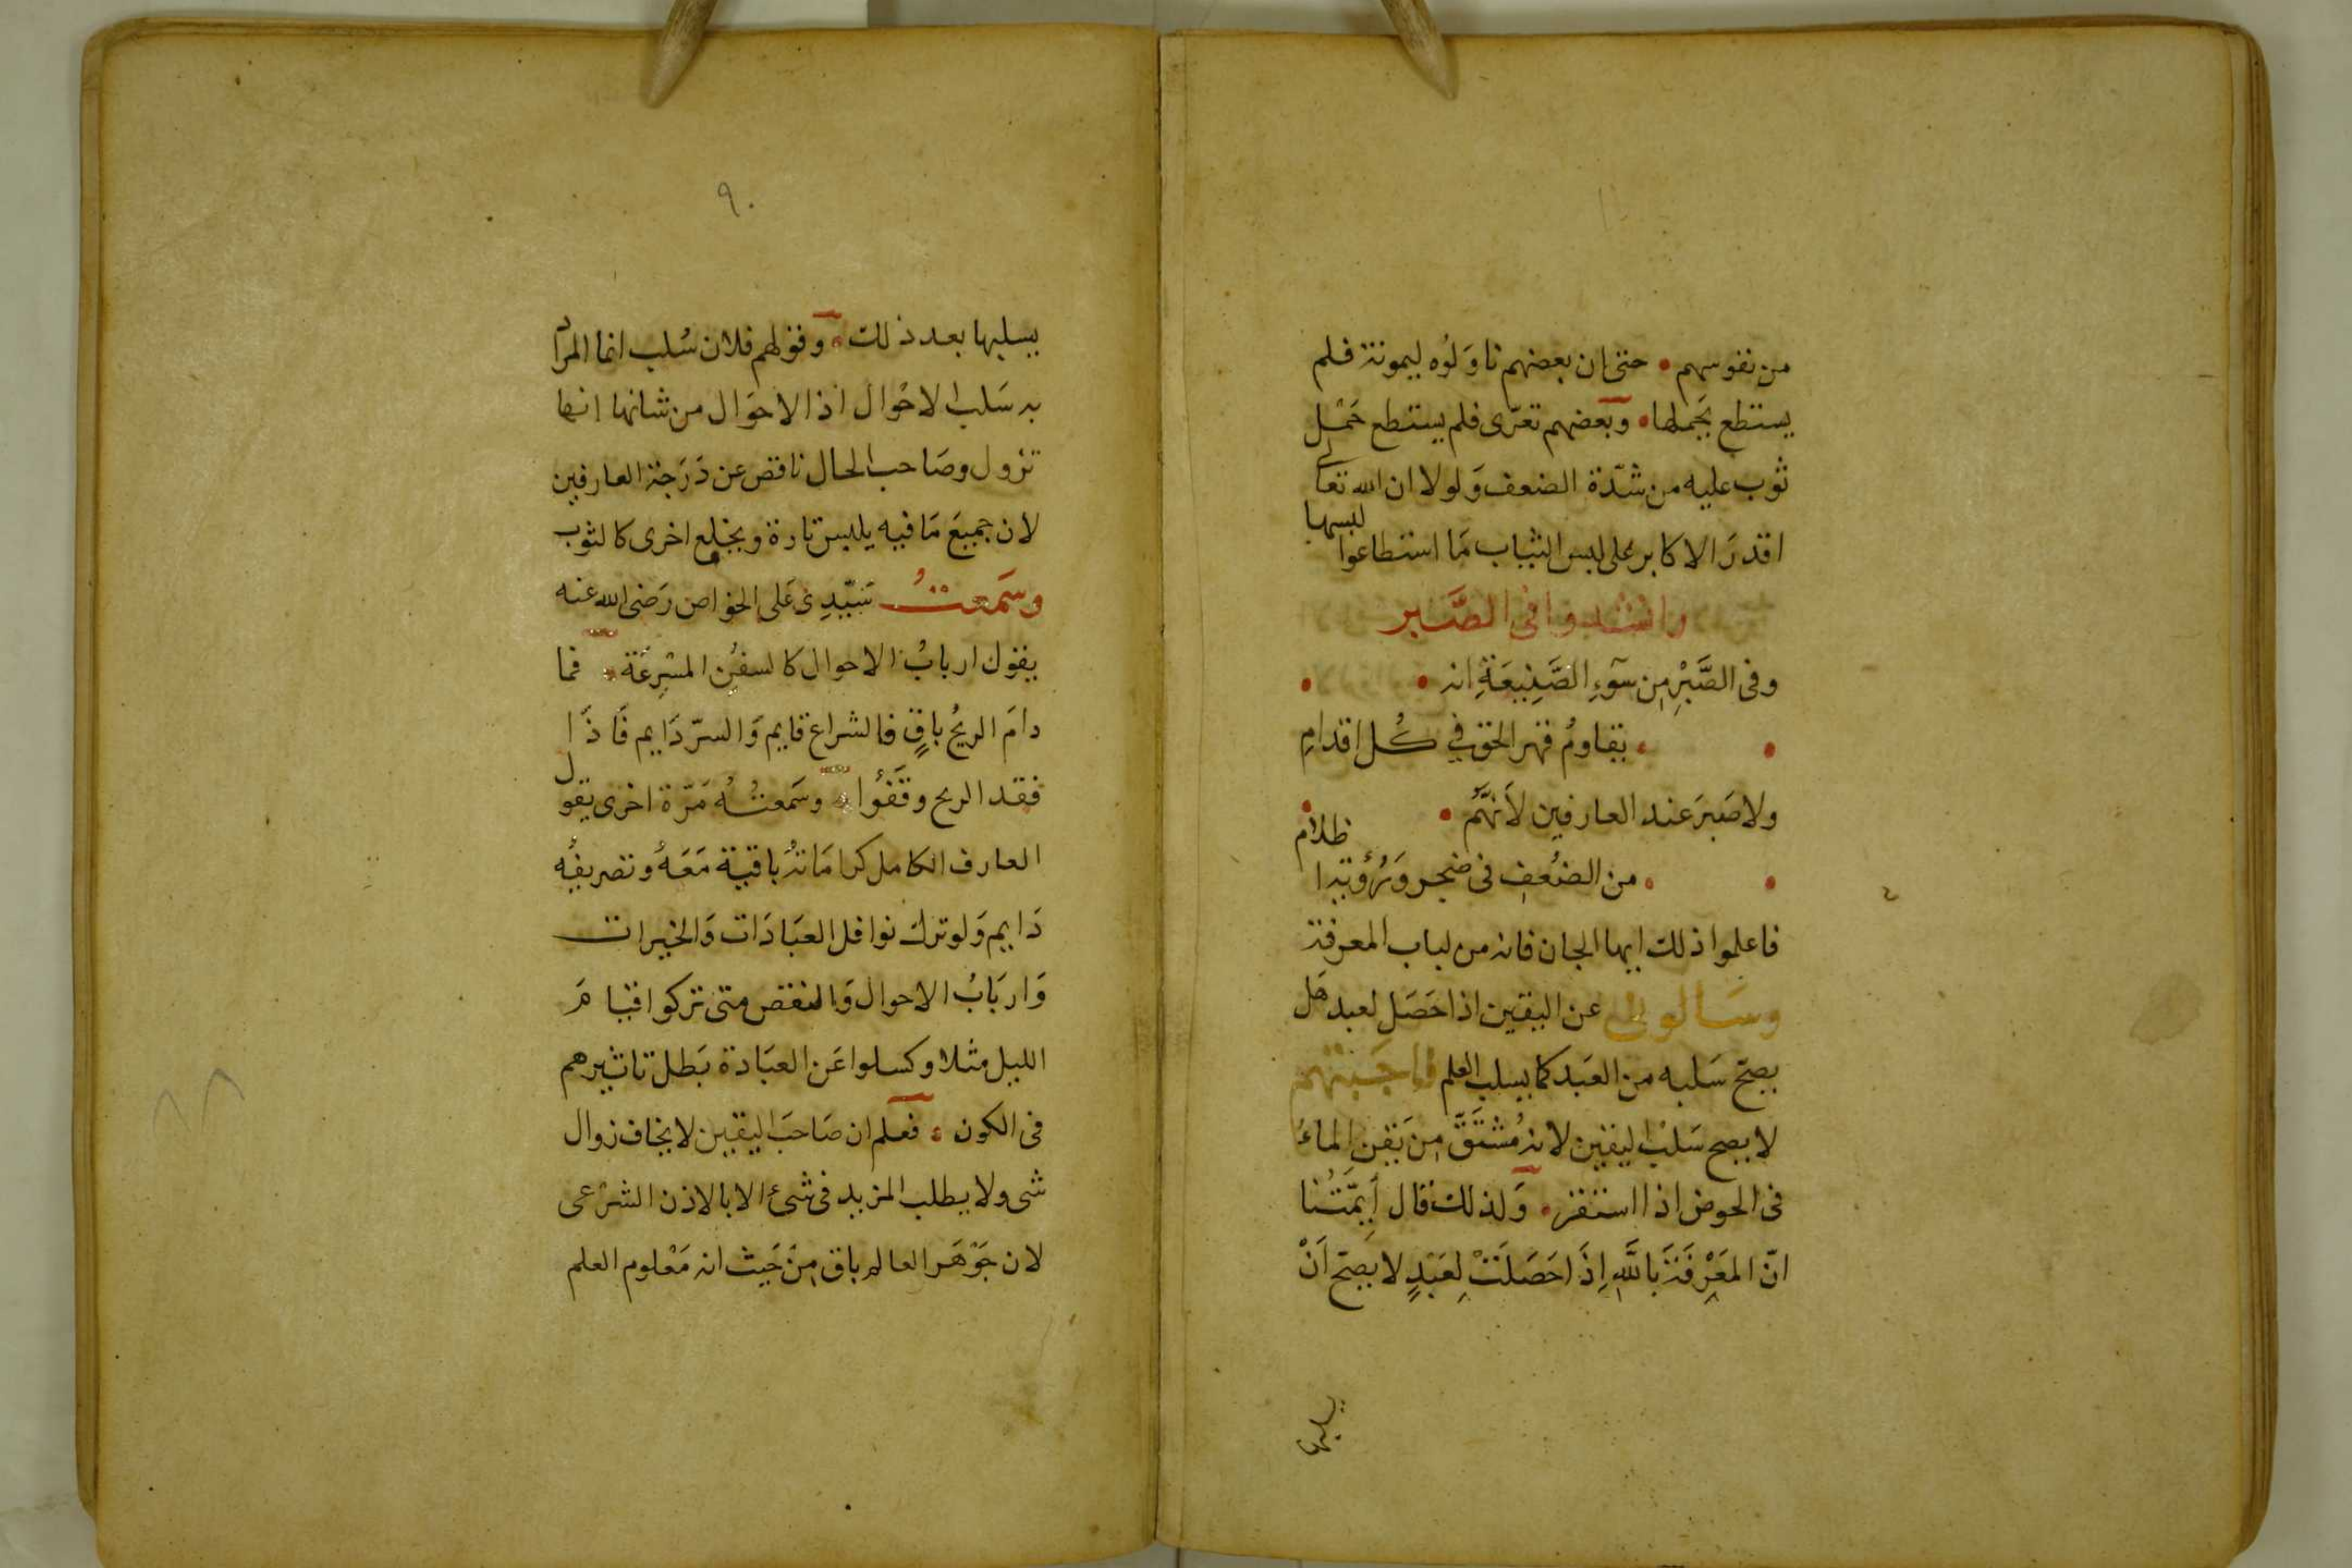 من نفوسهم • حتى ان بعضهم ناولوه ليمونة فلم
يستطع بحملها • وبعضهم تعرّى فلم يستطع حَمْل
ثوب عليه من شدّة الضعف وَلولا ان الله تعالى
اقدرَ الاكابر على لبس الثياب مَا استطاعوا لبسها
وانشدوا فى الصَّبر
وفى الصَّبْرِ مِن سَوءِ الصَّنِيعَةِ انه •
• يقاومُ قهر الحق في كُل اقدامِ
ولا صَبرَ عند العارفين لأَنهَّم •
• من الضُعفِ فى ضجر وَرُؤية اظلام
فاعلموا ذلك ايها الجان فانه من لباب المعرفة
وسَالونى عن اليقين اذا حَصَل لعبد هَل
يصحّ سَلبه من العَبد كما يسلب العلم فاجَبتهم
لا يصح سَلبُ اليقين لانه مُشتَقَّ مِن يَقن الماءُ
فى الحوض اذا استقر • وَلذلك قال أَيِمَّتُنا
انّ المَعْرِفَةَ بَاللَّهِ اِذَا حَصَلَتْ لِعَبْدٍ لا يصحّ اَنْ
يسلبها
٩٠
يسلبها بعد ذلك • وقولهم فلان سُلب انما المراد
به سَلب الاحْوال اذ الاحوَال من شانها انها
تزول وصَاحب الحال ناقص عن دَرَجة العارفين
لان جميعَ مَا فيه يلبس تارة ويخلع اخرى كالثوب
وسَمعتُ سَيّدِى عَلى الخواص رَضى الله عنه
يقول اربابُ الاحوال كالسفُن المشرعَة • فما
دامَ الريحُ باقٍ فالشراع قايم وَالسرّ دَايم فَاذَا
فقد الريح وقَفوُا • وسَمعتُهُ مَرّة اخرى يقول
العارف الكامل كرامَاتهُ باقية مَعَهُ وتصريفُه
دَايم وَلو ترك نوافل العبَادَات وَالخيرات
وَاربَابُ الاحوال وَالنقص متى تركوا قيامَ
الليل مثلا وكسلوا عَن العبَادة بَطل تاثيرهم
فى الكون • فعلم ان صَاحبَ اليقين لا يخاف زوال
شى ولا يطلب المزيد فى شىء الا بالاذن الشرْعى
لان جَوْهَر العالم باق مِنَ حَيث انه مَعْلوم العلم